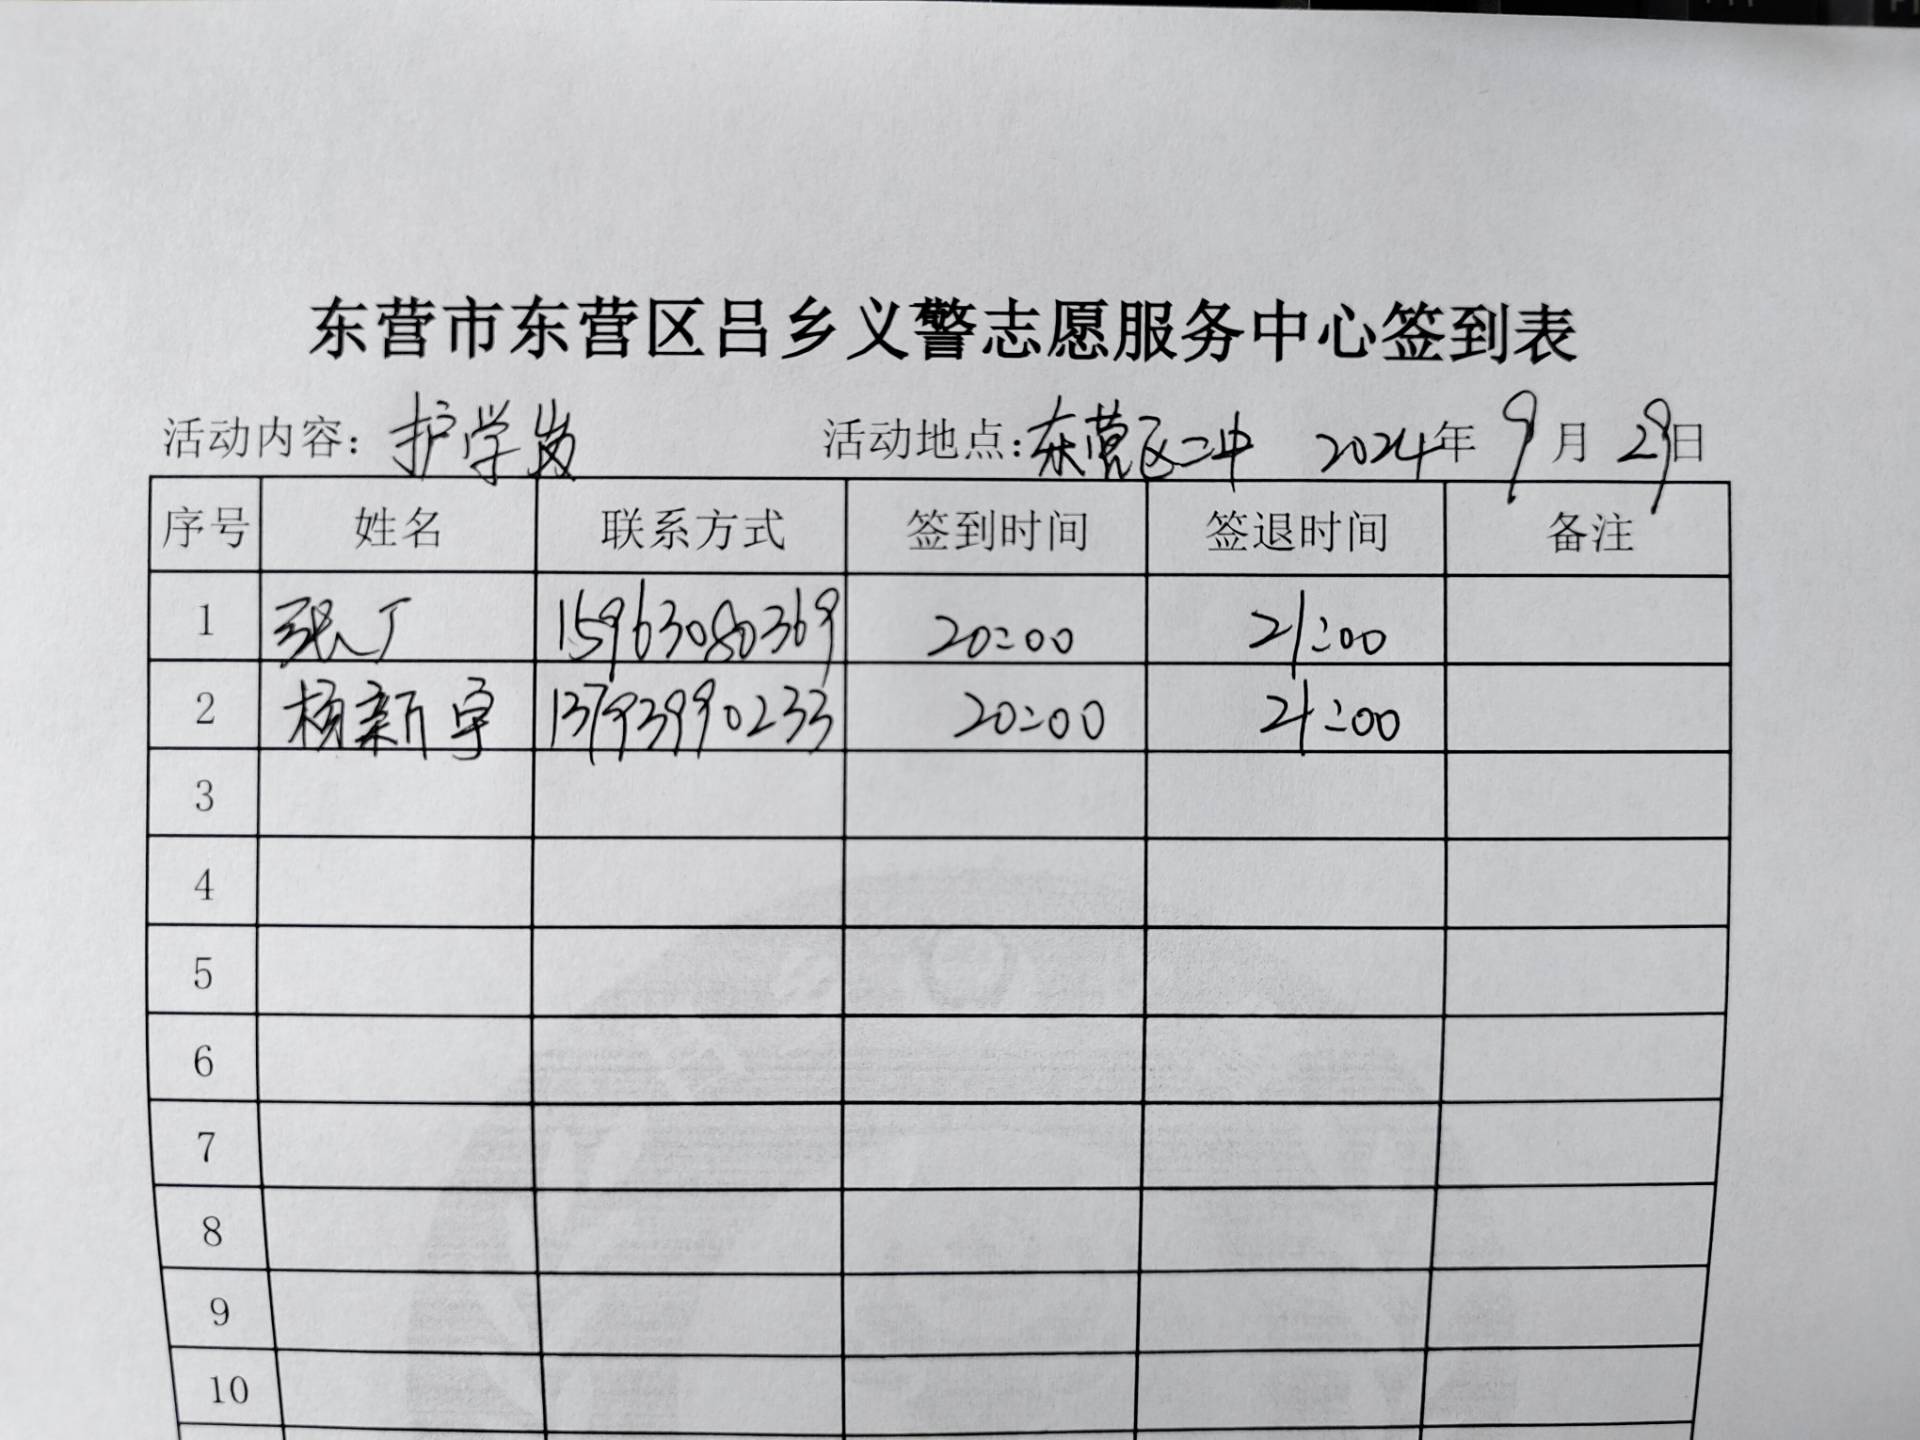 东营市东营区吕乡义警志愿服务中心签到表
活动内容：护学岗 活动地点：东营区二中 2024年 9月 29日
序号 姓名 联系方式 签到时间 签退时间 备注
1 张丁 15963080369 20:00 21:00
2 杨新宇 13793990233 20:00 21:00
3
4
5
6
7
8
9
10